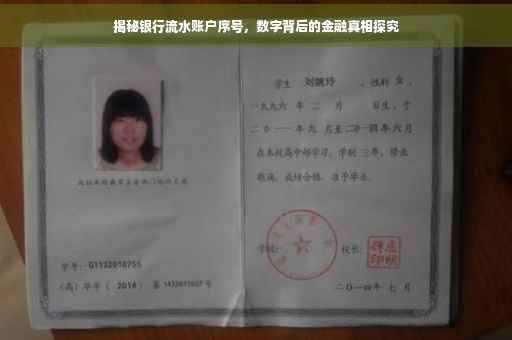 揭秘银行流水账户序号，数字背后的金融真相探究
学生 刘婉玲 ，性别 女 ，
一九九六 年 二 月 日生，于
二0一一 年 九 月至 二0一四 年 六 月
在本校高中部学习，学制 三 年，修业
期满，成绩合格，准予毕业。
学校：
校长：
二〇一四年 七 月
学号：G1132010755
（高）毕字（ 2014 ）第 1432011027 号